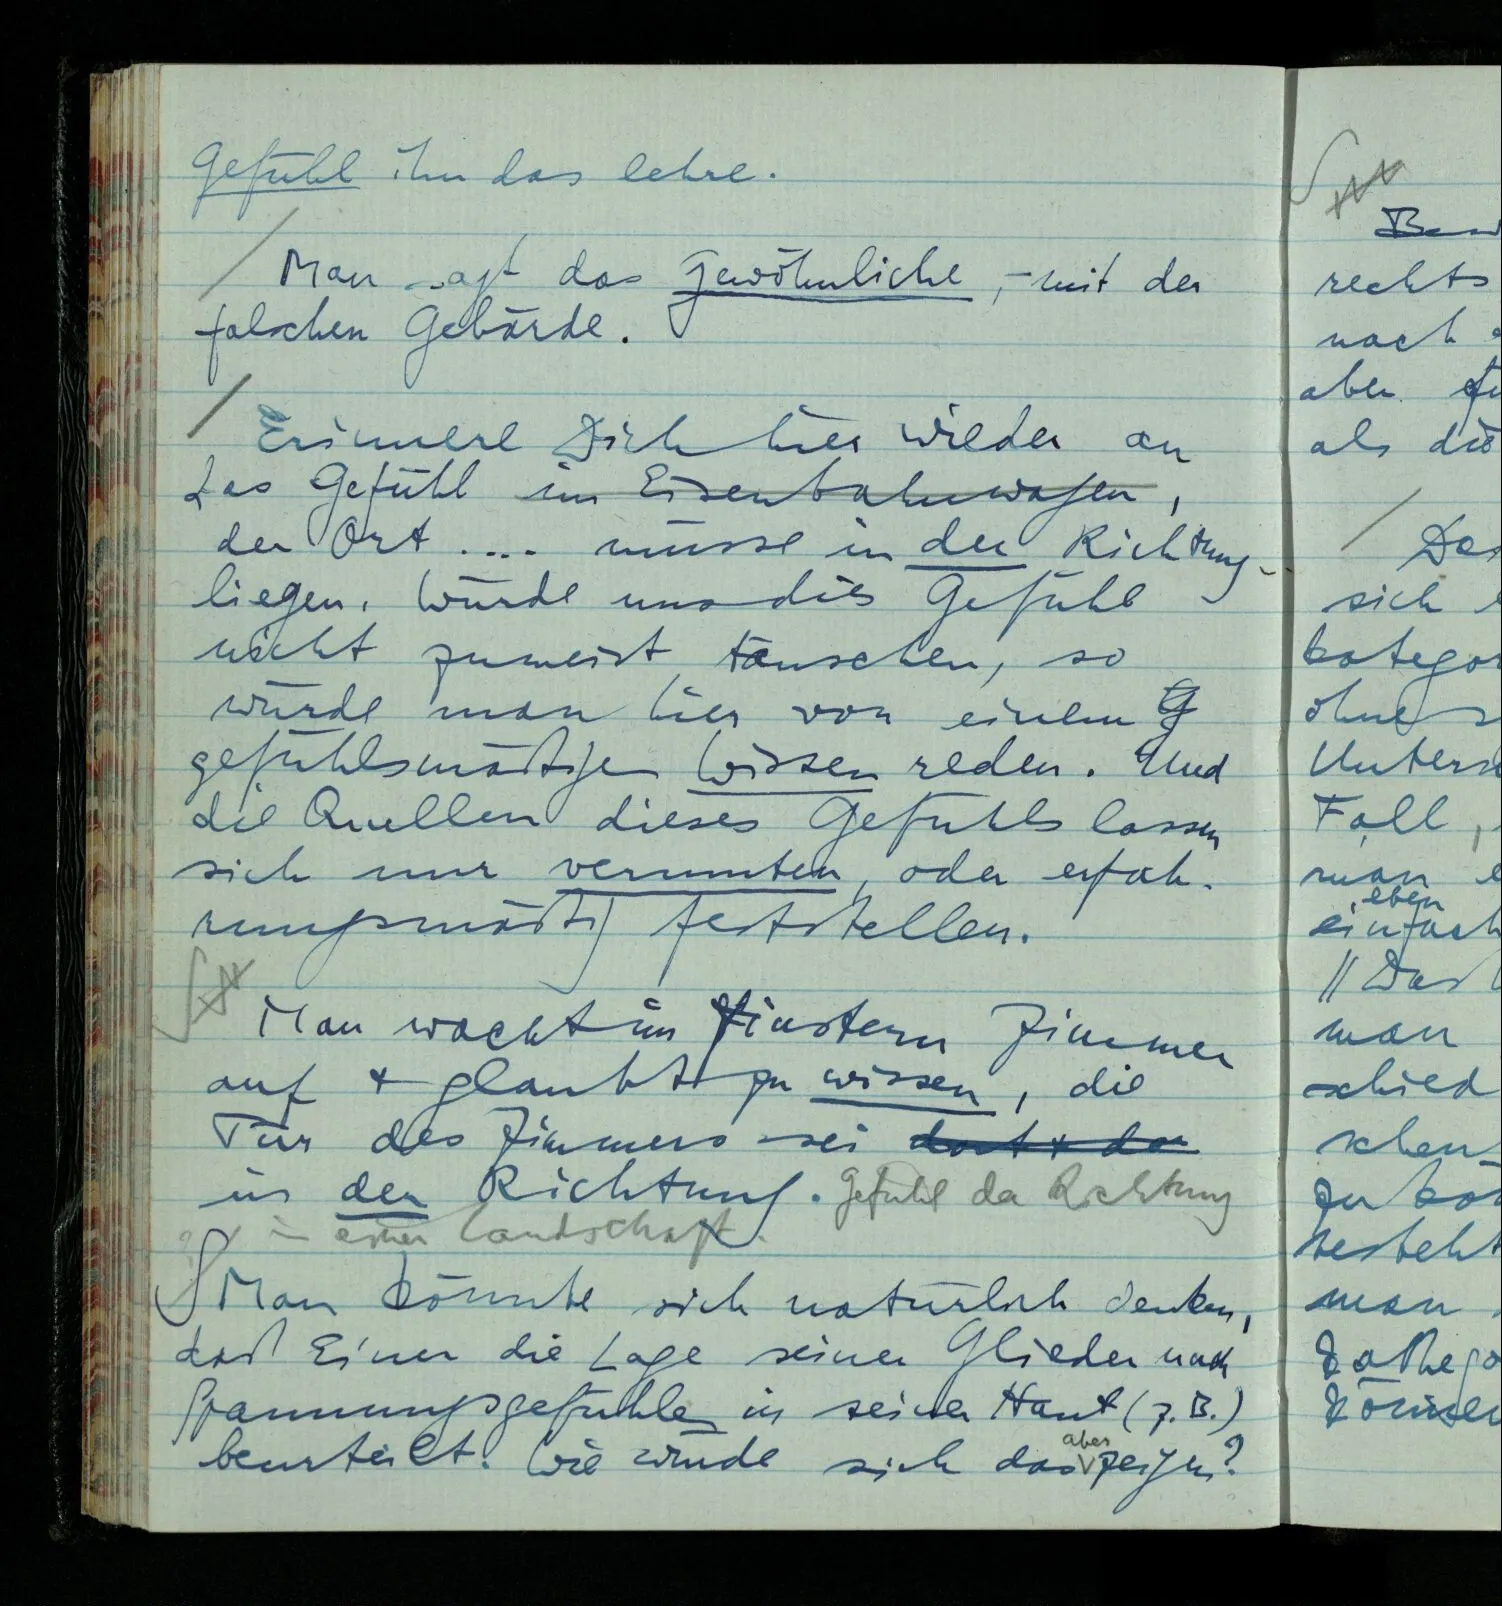 Gefühl ihn das lehre.
/ Man sagt das Gewöhnliche, – mit der
falschen Gebärde.
/ Erinnere Dich hier wieder an
das Gefühl im Eisenbahnwagen,
der Ort .... müsse in der Richtung
liegen. Würde uns dies Gefühl
nicht zumeist täuschen, so
würde man hier von einem G
gefühlsmäßigen Wissen reden. Und
die Quellen dieses Gefühls lassen
sich nur vermuten, oder erfah-
rungsmäßig feststellen.
Man wacht im finstern Zimmer
auf + glaubt zu wissen, die
Tür des Zimmers sei dort + da
in der Richtung. Gefühl der Richtung
in einer Landschaft.
Man könnte sich natürlich denken,
daß Einer die Lage seiner Glieder nach
Spannungsgefühlen in seiner Haut (z.B.)
beurteilt. Wie würde sich das aber zeigen?
rechts
nach
aber
als die
/
sich
kategor
ohne
Unters
Fall,
man
eben
einfach
// Das
man
schied
schen
zu
besteht
man
können